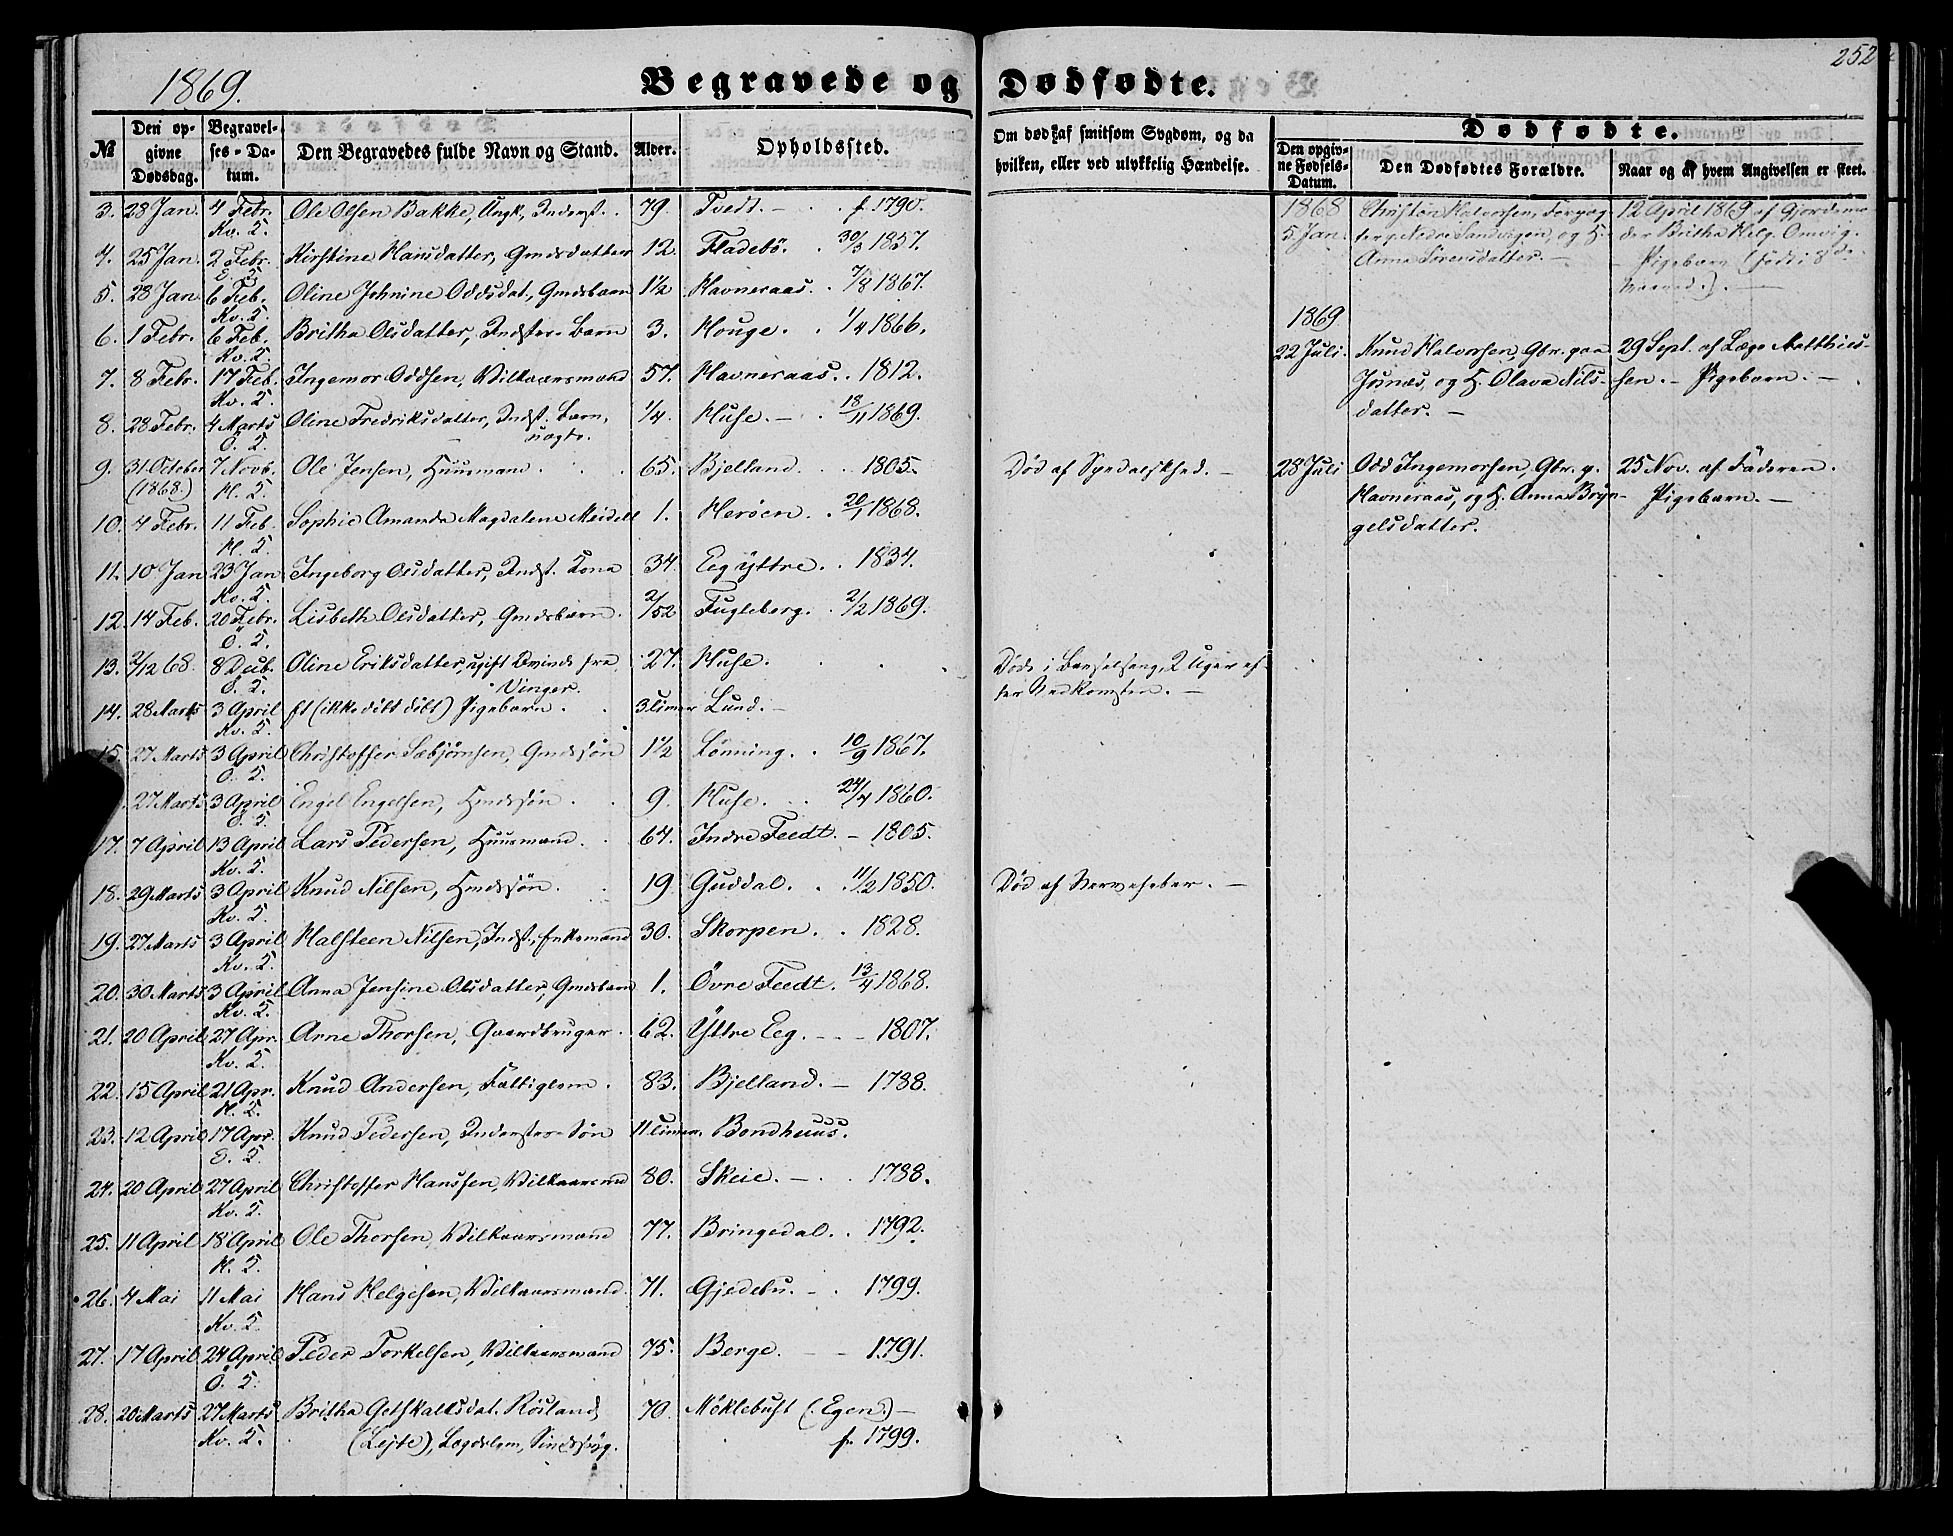 1869.
Begravede og Dødfødte.
252
№
Den opgivne Dødsdag.
Begravelses-Datum.
Den Begravedes fulde Navn og Stand.
Alder.
Opholdssted.
Om død af smitsom Sygdom, og da hvilken, eller ved ulykkelig Hændelse.
Dødfødte.
Den opgivne Fødsels-Datum.
Den Dødfødtes Forældre.
Naar og af hvem Angivelsen er skeet.
3. 28 Jan. 4 Febr. Ole Olsen Bakke, Ungk, Inderst. 79. Tvedt. — f. 1790.
Kv. S.
4. 25 Jan. 2 Febr. Kirstine Hansdatter, Gmdsdatter 12. Fladebö. 30/3 1857.
5. 28 Jan. 6 Feb. Oline Johnine Oddsdat., Gmdsbarn 1½ Havneraas. 7/8 1867.
Kv. S.
6. 1 Febr. 6 Feb. Britha Olsdatter, Indster-Barn 3. Houge. 1/4 1866.
Kv. S.
7. 8 Febr. 17 Feb. Ingemor Oddsen, Vilkaarsmand 57. Havneraas. 1812.
Kv. S.
8. 28 Febr. 4 Marts Oline Fredriksdatter, Indst. Barn, ¼. Huse. — 18/11 1869.
Ö. S. uægte.
9. 31 October 7 Novb. Ole Jensen, Huusmand 65. Bjelland. 1805. Död af Spedalskhed. —
(1868.) H. S.
10. 4 Febr. 11 Feb. Sophie Amanda Magdalene Meidell 1. Heröen. 20/1 1868.
H. S.
11. 10 Jan 23 Jan Ingeborg Olsdatter, Indst. Kona 34. Eeg yttre. 1834.
Kv. S.
12. 14 Feb. 20 Febr. Lisbeth Olsdatter, Gmdsbarn. 2/52 Fugleberg. 2/2 1869.
Ö. S.
13. 2/12 68. 8 Dcb. Oline Eriksdatter, ugift Qvinde fra 27. Huse. Döde i Barselseng, 2 Uger ef-
Ö. S. Vinger. ter Nedkomsten. —
14. 28 Marts 3 April et (ikke döbt) Pigebarn. 3 timer Lund. —
Kv. S.
15. 27 Marts 3 April Christopher Sæbjörnsen, Gmdssön 1½ Lönning. 10/9 1867.
Ö. S.
27 Marts 3 April Engel Engelsen, Hmdssön 9. Huse. 24/4 1860.
Ö. S.
17. 7 April 13 April Lars Pedersen, Huusmand. 64. Indre Feedt. — 1805.
Kv. S.
18. 29 Marts 3 April Knud Nilsen, Hmdssön. 19 Guddal. 11/2 1850. Död af Nervefeber. —
Kv. S.
19. 27 Marts 3 April Halsteen Nilsen, Indst, Enkemand 30. Skorpen. 1828.
Kv. S.
20. 30 Marts 3 April Anna Jensine Olsdatter, Gmdsbarn 1. Övre Feedt. 13/4 1868.
Kv. S.
21. 20 April 27 Apr. Arne Thorsen, Gaardbruger. 62. Yttre Eeg. — 1807.
Kv. S.
22. 15 April 21 Apr. Knud Andersen, Fattiglem. 83. Bjelland. — 1788.
H. S.
23. 12 April 17 Apr. Knud Pedersen, Inderster-Sön 11 timer. Bondhuus.
24. 20 April 27 April Christoffer Hanssen, Vilkaarsmd 80. Skeie. — 1788.
Kv. S.
25. 11 April 18 April Ole Thorsen, Vilkaarsmand 77. Bringedal. 1792.
H. S.
26. 4 Mai 11 Mai Hans Helgesen, Vilkaarsmand. 71. Gjedebu. — 1799.
Kv. S.
27. 17 April 24 April Peder Torkelsen, Vilkaarsmand 75. Berge. — 1791.
Ö. S.
28. 20 Marts 27 Marts Britha Gotskalksdat. Rösland 70. Möklebust (Egen.) —
Kv. S. (Lejte), Lægdslem, Sindssyg. f. 1799.
1868
5 Jan.
Christen Halvorsen, Forpag-
ter p. Nedre Sandvigen, og H.
Anna Sörensdatter. —
12 April 1869 af Gjordemo-
der Britha Helg. Omvig.
— Pigebarn (født i 8de
Maaned). —
1869
22 Juli.
Knud Halvorsen, Gbr. paa
Jusnæs, og H. Olava Nils-
datter. —
29 Sept. af Læge Matthies-
sen. — Pigebarn. —
28 Juli
Odd Ingemorsen, Gbr. p.
Havneraas, og H. Anna Bryn-
gelsdatter.
25 Nov. af Faderen.
Pigebarn. —